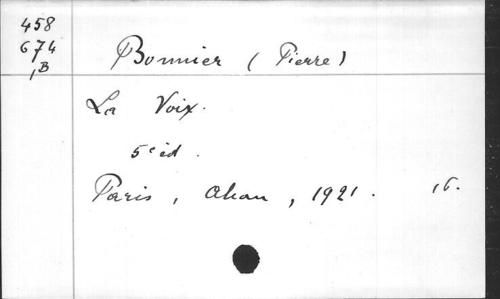 458
674
,B
Bonnier (Pierre)
La Voix.
5e éd.
Paris, Alcan, 1921. 16.